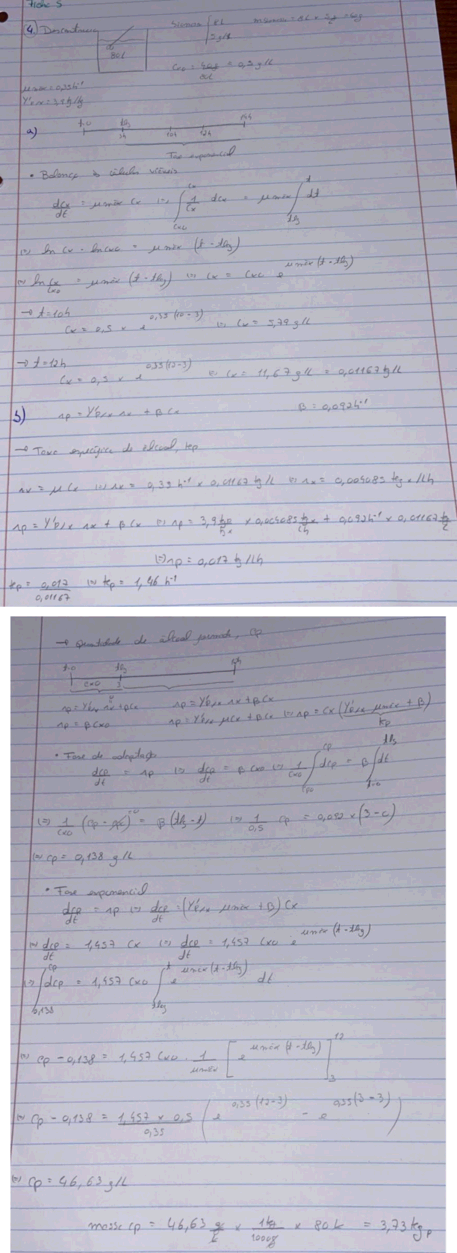 Ficha 5
④ Descontínuo
80L
Cx0 = = 0,5 g/L
μmáx = 0,35 h⁻¹
Y'p/x = 3,9 kg/kg
a)
t=0 tlag
Fase exponencial
• Balanço às células viáveis
dCx/dt = μmáx Cx (=) ∫ 1/Cx dCx = μmáx ∫ dt
(=) ln Cx - ln Cx0 = μmáx (t - tlag)
(=) ln Cx/Cx0 = μmáx (t - tlag) (=) Cx = Cx0 e^μmáx (t - tlag)
→ t=10h
Cx = 0,5 × e^0,35 (10-3) (=) Cx = 5,79 g/L
→ t=12h
Cx = 0,5 × e^0,35 (12-3) (=) Cx = 11,67 g/L = 0,01167 kg/L
b) rp = Y'p/x rx + β Cx β = 0,092 h⁻¹
→ Taxa específica de álcool, kp
rx = μ Cx (=) rx = 0,35 h⁻¹ × 0,01167 kg/L (=) rx = 0,004085 kg x/Lh
rp = Y'p/x rx + β Cx (=) rp = 3,9 kgp/kgx × 0,004085 kgx/Lh + 0,092 h⁻¹ × 0,01167 kg/L
(=) rp = 0,017 kg/Lh
kp = 0,017/0,01167 (=) kp = 1,46 h⁻¹
→ Quantidade de álcool formado, Cp
t=0 tlag 12h
Cx0
rp = Y'p/x rx + β Cx rp = Y'p/x rx + β Cx
rp = β Cx0 rp = Y'p/x μ Cx + β Cx (=) rp = Cx (Y'p/x μmáx + β)
kp
• Fase de adaptação
dCp/dt = rp (=) dCp/dt = β Cx0 (=) 1/Cx0 ∫ dCp = β ∫ dt
(=) 1/Cx0 (Cp - Cp0) = β (tlag - t) (=) 1/0,5 Cp = 0,092 × (3 - 0)
(=) Cp = 0,138 g/L
• Fase exponencial
dCp/dt = rp (=) dCp/dt = (Y'p/x μmáx + β) Cx
(=) dCp/dt = 1,457 Cx (=) dCp/dt = 1,457 Cx0 e^μmáx (t - tlag)
(=) ∫ dCp = 1,457 Cx0 ∫ e^μmáx (t - tlag) dt
(=) Cp - 0,138 = 1,457 Cx0 · 1/μmáx [e^μmáx (t - tlag)]
(=) Cp - 0,138 = 1,457 × 0,5/0,35 (e^0,35 (12-3) - e^0,35 (3-3))
(=) Cp = 46,63 g/L
massa Cp = 46,63 g/L × 1kg/1000g × 80 L = 3,73 kg p